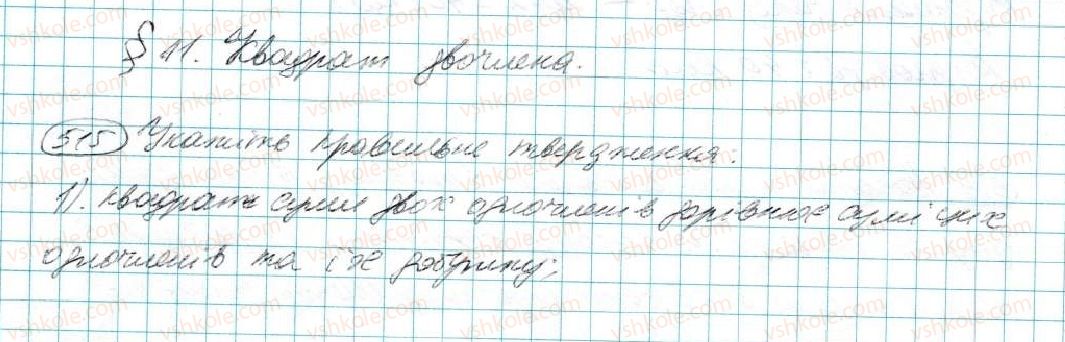 § 11. Квадрат двочлена.
515 Укажіть правильне твердження:
1). квадрат суми двох одночленів дорівнює сумі цих
одночленів та їх добутку;